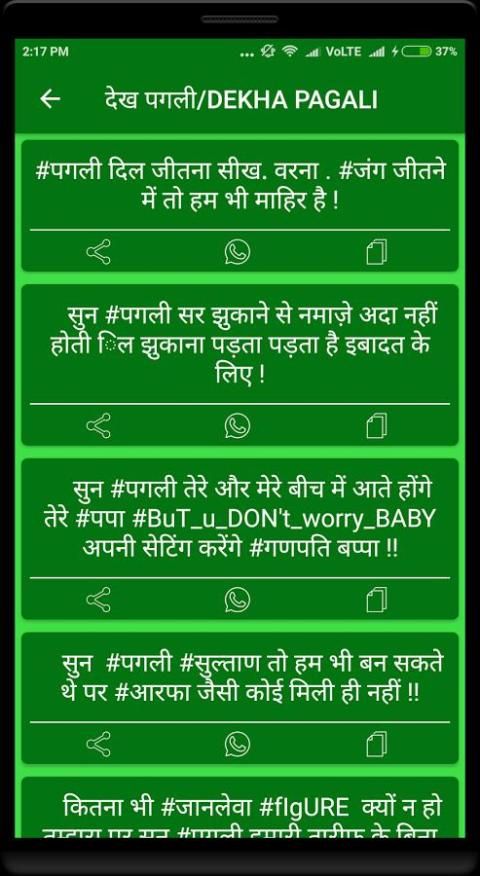 2:17 PM ... VoLTE 37%
देख पगली/DEKHA PAGALI
#पगली दिल जीतना सीख. वरना . #जंग जीतने
में तो हम भी माहिर है !
सुन #पगली सर झुकाने से नमाज़े अदा नहीं
होती िल झुकाना पड़ता पड़ता है इबादत के
लिए !
सुन #पगली तेरे और मेरे बीच में आते होंगे
तेरे #पपा #BuT_u_DON't_worry_BABY
अपनी सेटिंग करेंगे #गणपति बप्पा !!
सुन #पगली #सुल्ताण तो हम भी बन सकते
थे पर #आरफा जैसी कोई मिली ही नहीं !!
कितना भी #जानलेवा #fIgURE क्यों न हो
तुम्हारा पर सुन #पगली हमारी तारीफ के बिना